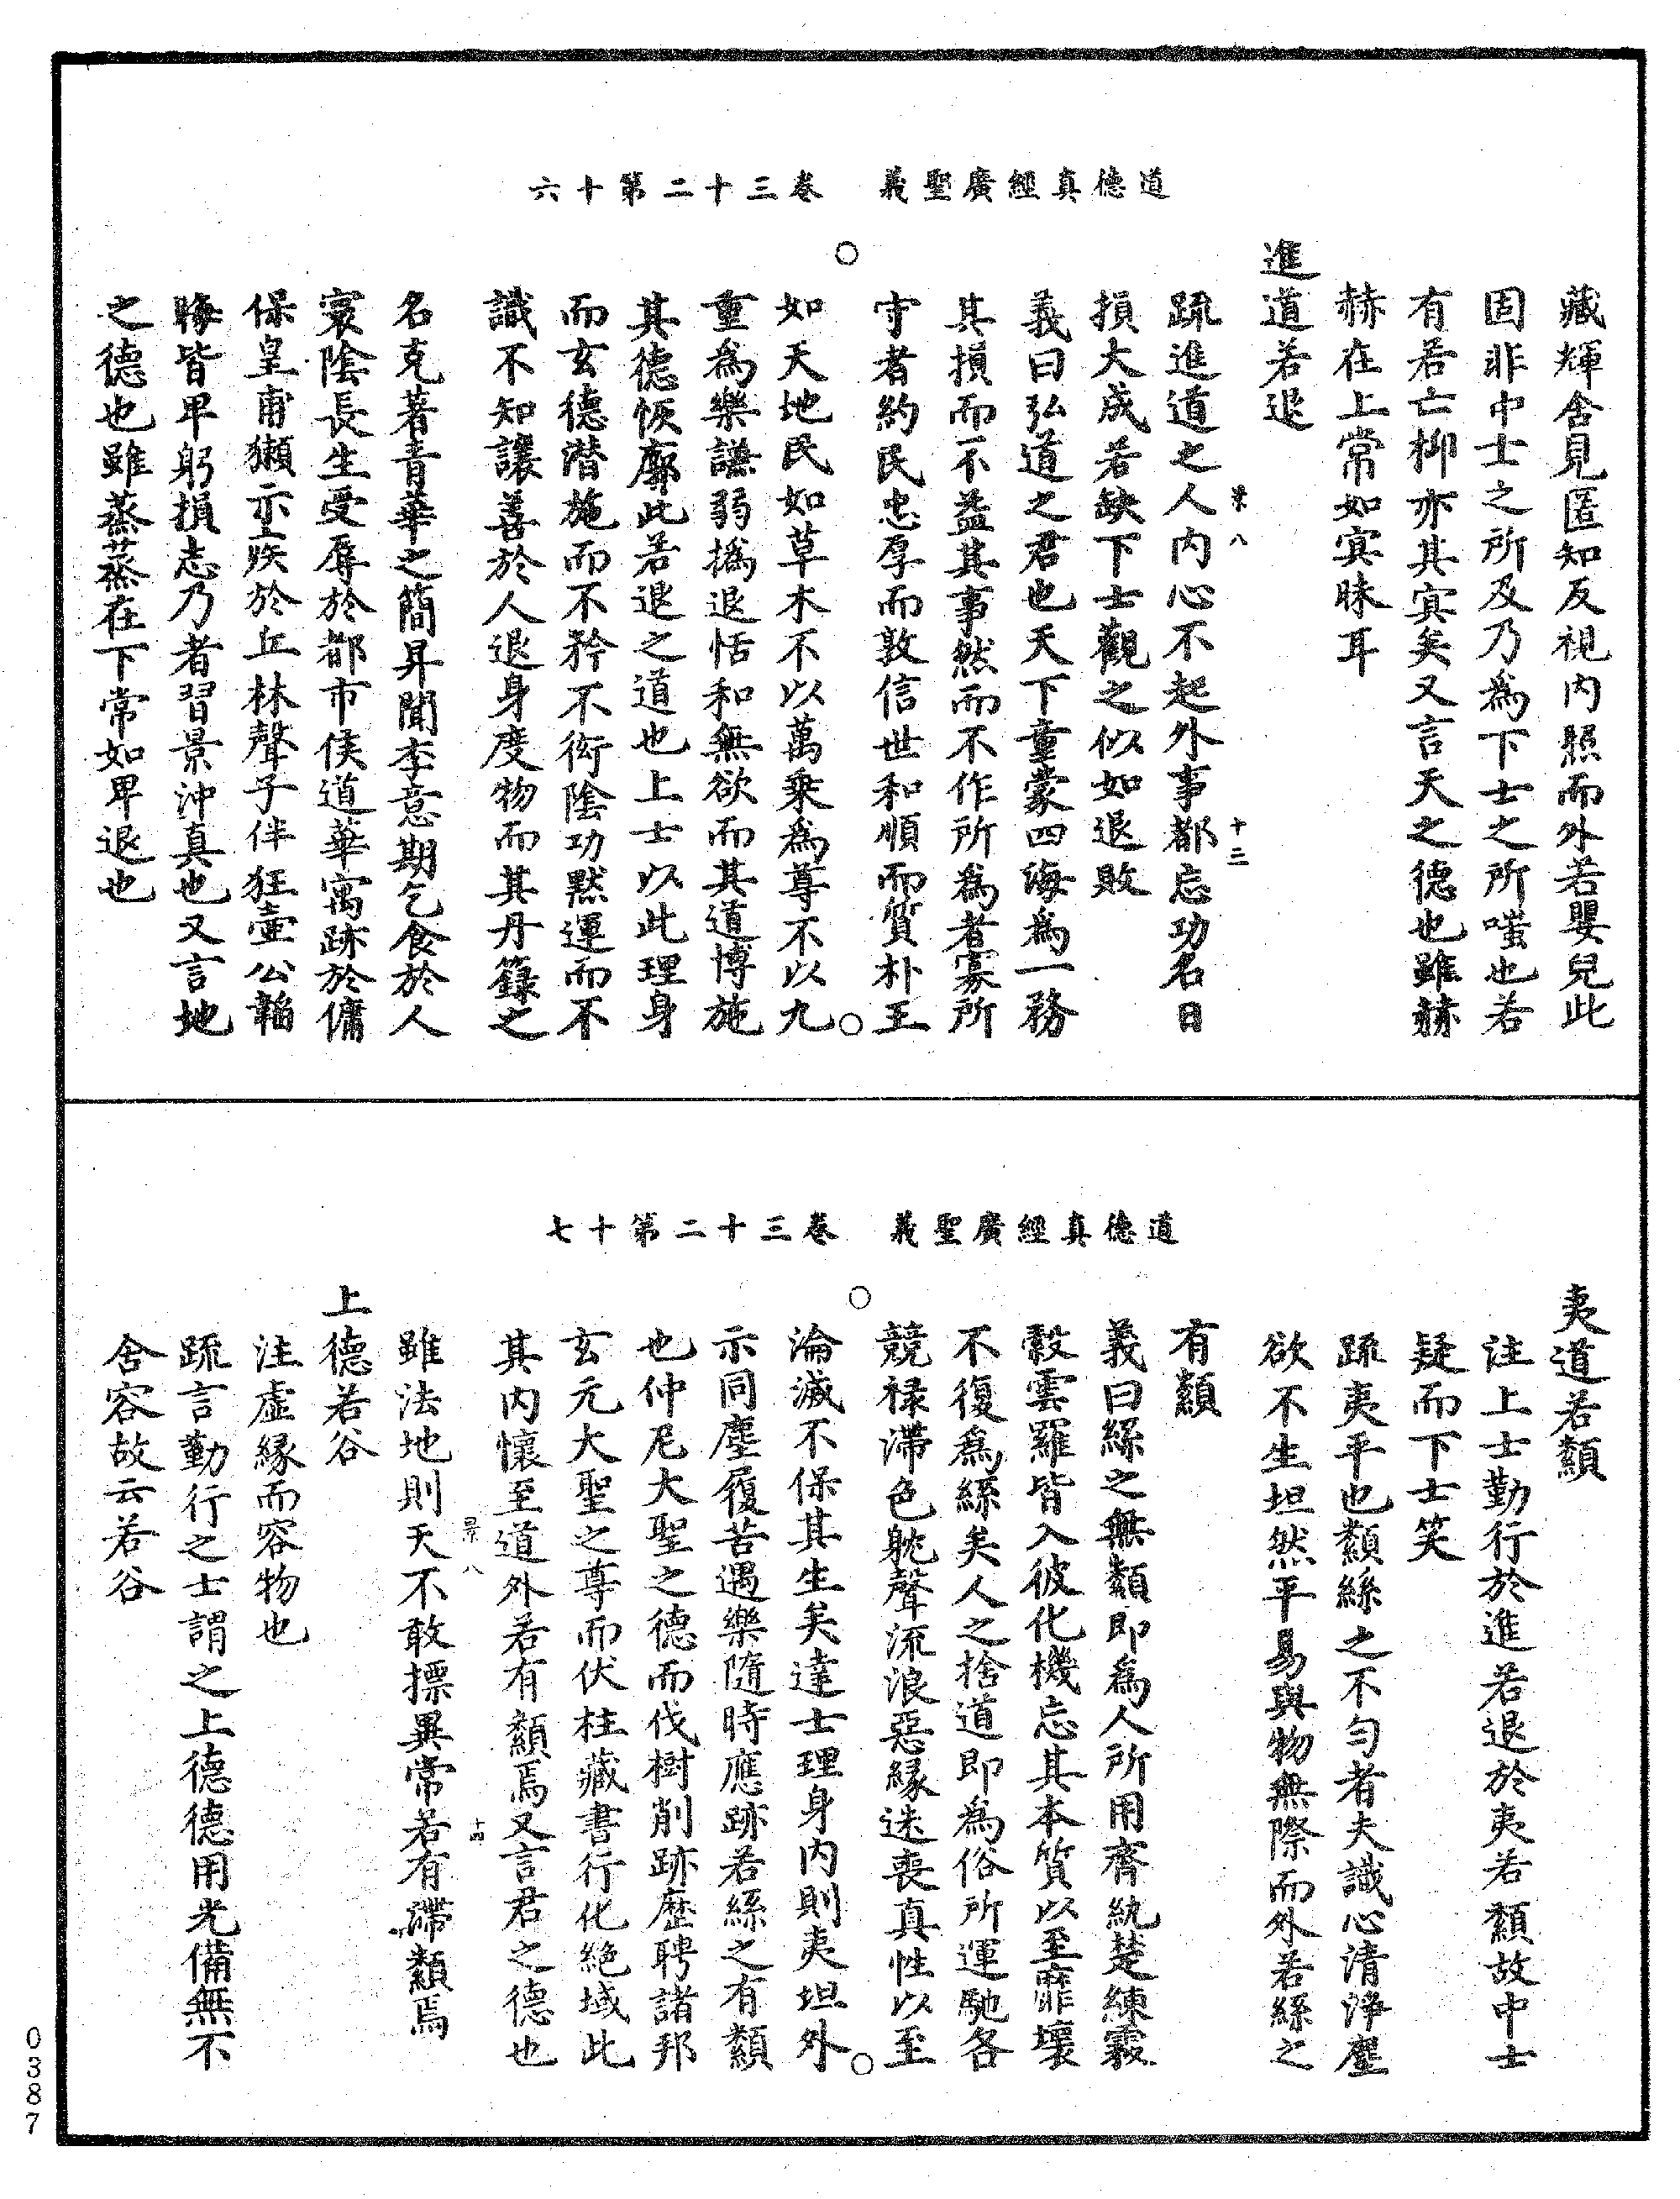 道德真經廣聖義　卷三十二第十六
藏輝含見匿知反視內照而外若嬰兒此
固非中士之所及乃為下士之所嗤也若
有若亡抑亦其㝠矣又言天之德也雖赫
赫在上常如㝠昧耳
進道若退
景八　十三
疏進道之人內心不起外事都忘功名日
損大成若缺下士觀之似如退敗
義曰弘道之君也天下童蒙四海為一務
其損而不益其事然而不作所為者寡所
守者約民忠厚而敦信世和順而質朴王
○
○
如天地民如草木不以萬乘為尊不以九
重為樂謙弱撝退恬和無欲而其道博施
其德恢廓此若退之道也上士以此理身
而玄德潛施而不矜不衒陰功默運而不
識不知讓善於人退身度物而其丹籙之
名克著青華之簡昇聞李意期乞食於人
寰陰長生受辱於都市侯道華寓跡於傭
保皇甫獺示㾗於丘林聲子佯狂壺公韜
晦皆卑躬損志乃者習景沖真也又言地
之德也雖蒸蒸在下常如卑退也
道德真經廣聖義　卷三十二第十七
夷道若纇
注上士勤行於進若退於夷若纇故中士
疑而下士笑
疏夷平也纇絲之不勻者夫識心清淨塵
欲不生坦然平易與物無際而外若絲之
有纇
義曰絲之無纇即為人所用齊紈楚練霧
縠雲羅皆入彼化機忘其本質以至靡壞
不復為絲矣人之捨道即為俗所運馳各
競祿滯色躭聲流浪惡緣迷喪真性以至
○
○
淪滅不保其生矣達士理身內則夷坦外
示同塵履苦遇樂隨時應跡若絲之有纇
也仲尼大聖之德而伐樹削跡歷聘諸邦
玄元大聖之尊而伏柱藏書行化絕域此
其內懷至道外若有纇焉又言君之德也
景八　十四
雖法地則天不敢摽異常若有滯纇焉
上德若谷
注虛緣而容物也
疏言勤行之士謂之上德德用光備無不
含容故云若谷
0387